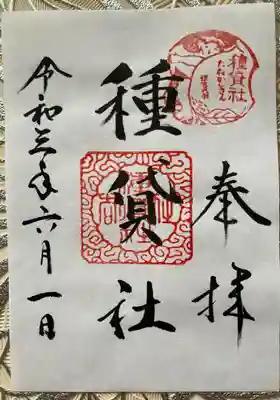 奉拝
種貸社
種貸社
令和三年六月一日